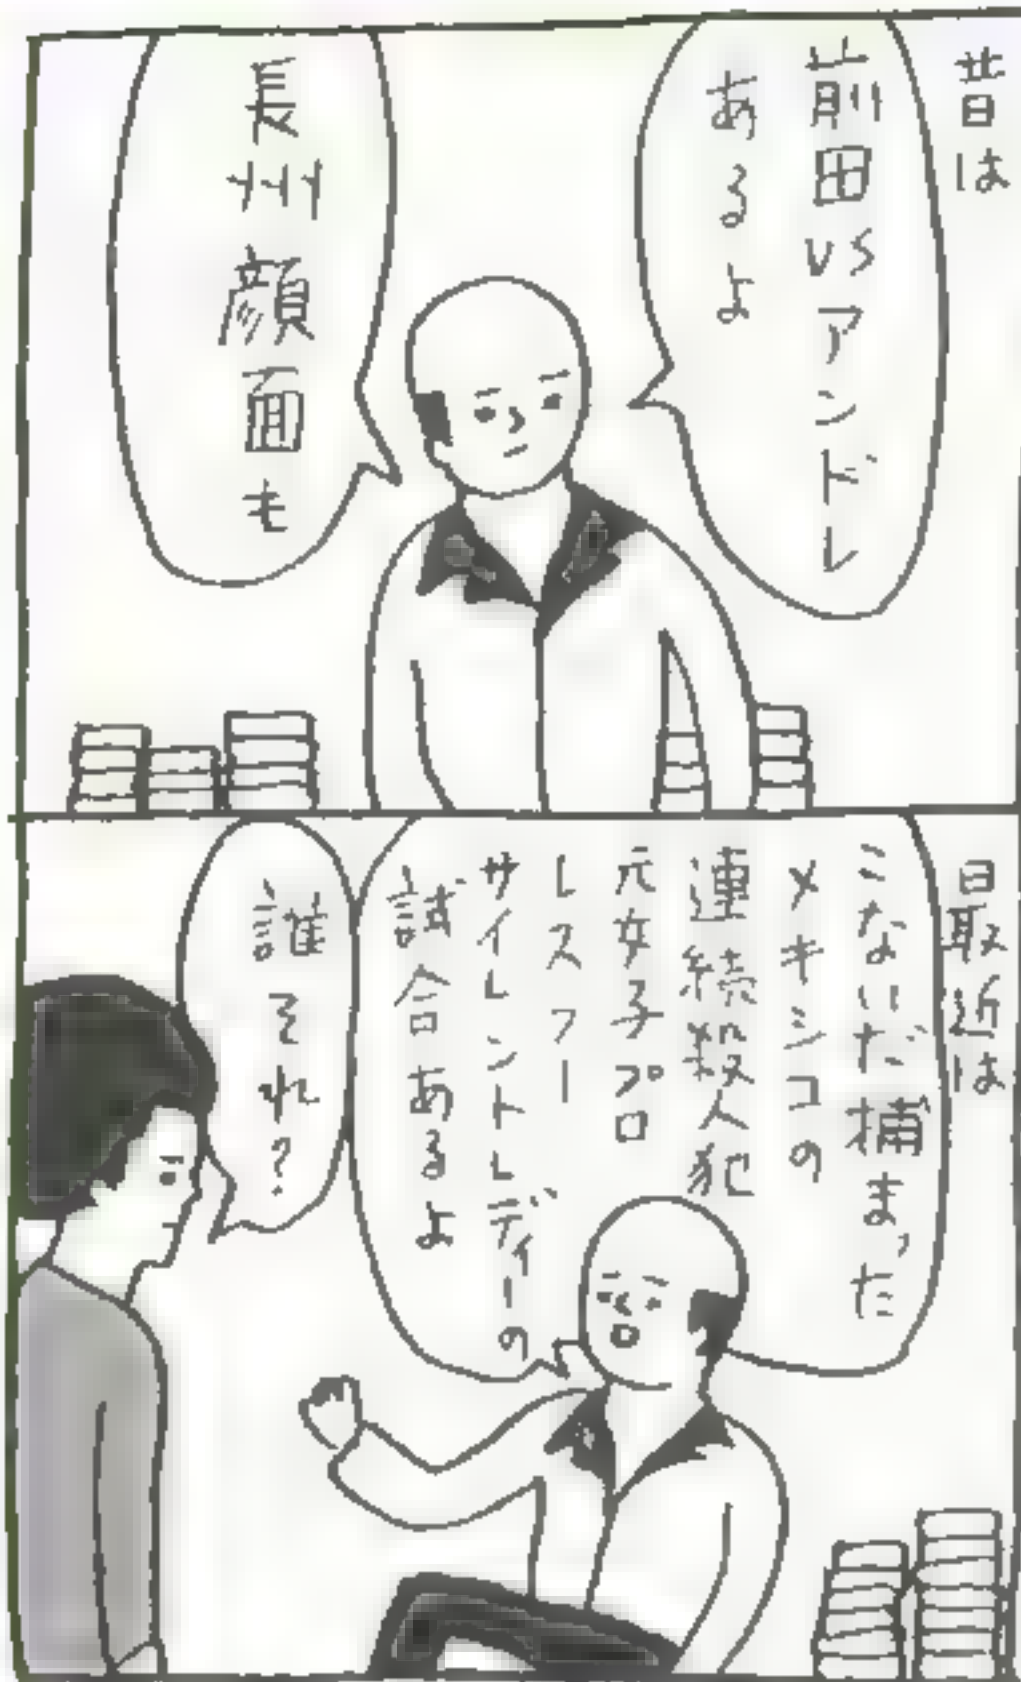 昔は
前田VSアンドレ
あるよ
長州顔面も
最近は
こないだ捕まった
メキシコの
連続殺人犯
元女子プロ
レスラー
サイレントレディーの
試合あるよ
誰それ?